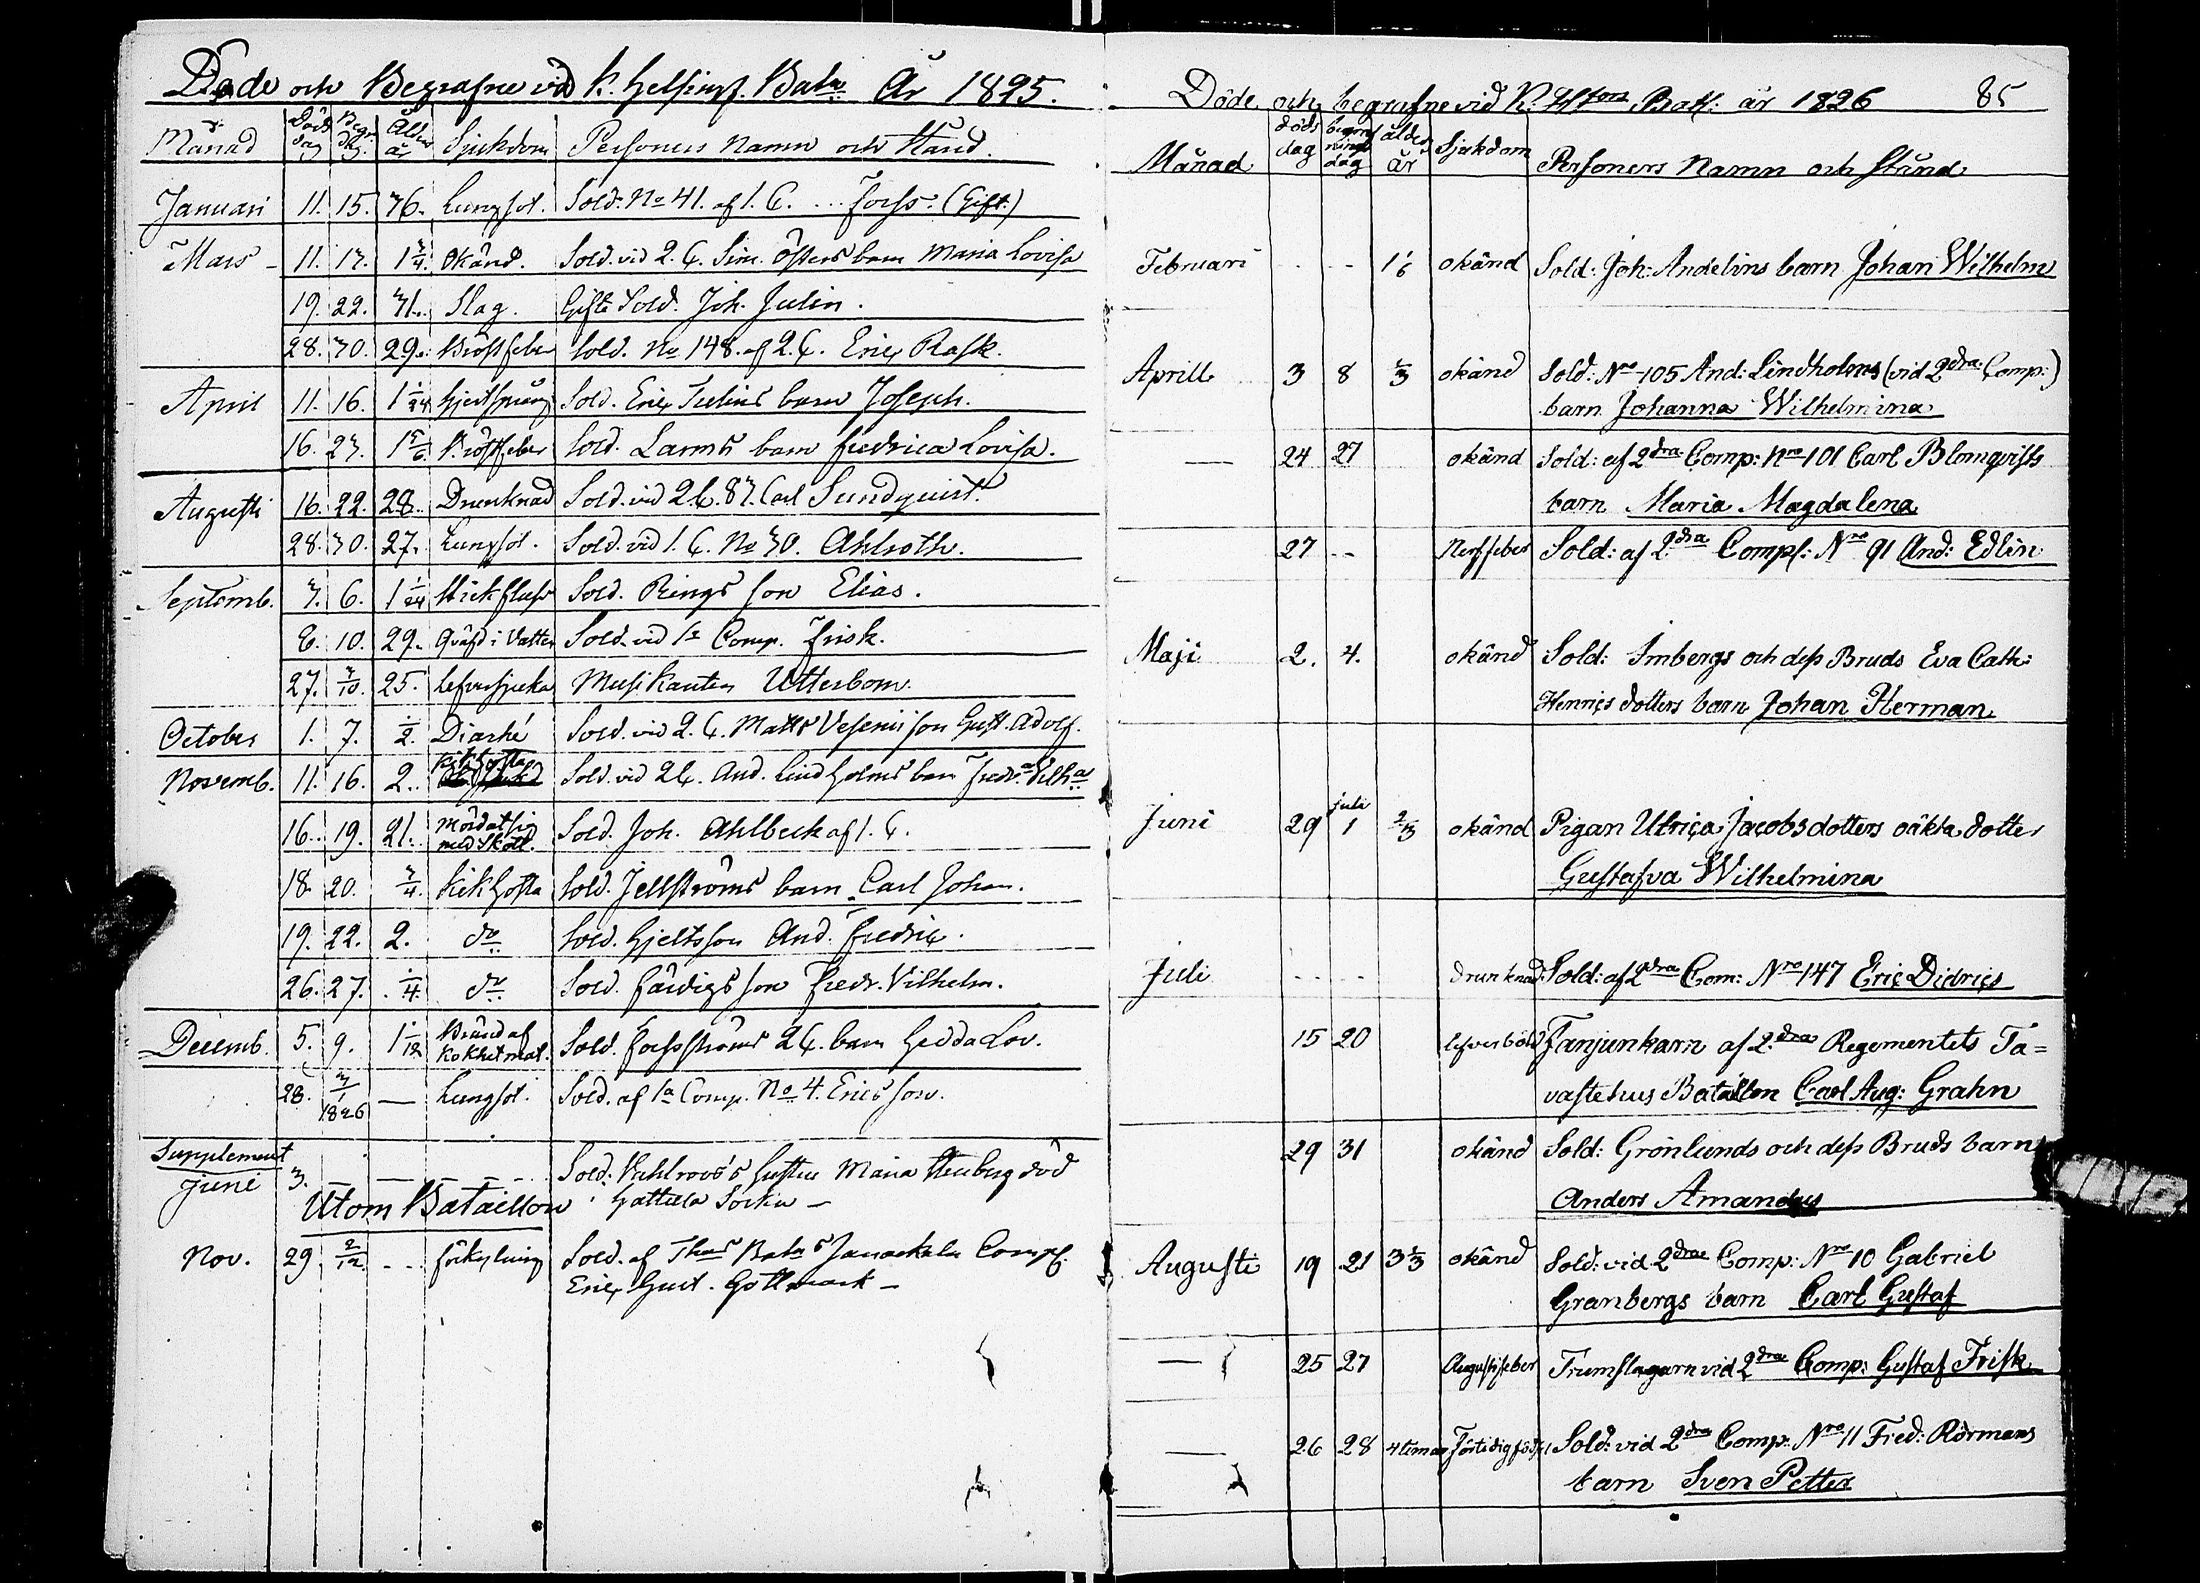 Döde och Begrafne vid K. Helsingf. Batn. År 1825.
Månad Döds dag Begr. dag Ålder år Sjukdom Personers Namn och Stånd.
Januari 11. 15. 36. Lungsot. Sold. No 41. af 1. C. ... Forss. (Gift.)
Mars 11. 13. 1 3/4. Okänd. Sold. vid 2. C. Sim. Östers barn Maria Lovisa
19. 22. 31. Slag. Gifte Sold. Joh. Julin.
28. 30. 29. Bröstfeber Sold. No 148. af 2. C. Eric Rask.
April 11. 16. 1/24 Sold. Eric Julins barn Joseph.
16. 23. 1 5/6 Bröstfeber Sold. Larms barn Fredrica Lovisa.
Augusti 16. 22. 28. Drunknad Sold. vid 2 C. 83. Carl Sundquist.
28. 30. 27. Lungsot. Sold. vid 1. C. No 30. Ahlroth.
Septemb. 3. 6. 1/24 Stickfluss Sold. Rings son Elias.
6. 10. 29. Qväfd i Vatten Sold. vid 1a Comp. Frisk.
27. 3/10. 25. lefversjuka Musikanten Utterbom.
October 1. 7. 1/2. Diarhé Sold. vid 2. C. Matts Vesenii son Gust. Adolf.
Novemb. 11. 16. 2. Kikhosta Sold. vid 2 C. And. Lindholms barn Fredr.a Vilh.a
16. 19. 21. Mördat sig med Skott. Sold. Joh. Ahlbeck af 1. C.
18. 20. 3/4. Kikhosta Sold. Jellströms barn Carl Johan.
19. 22. 2. do Sold. Hjelts son And. Fredric.
26. 27. 1/4. do Sold. Färdigs son Fredr. Vilhelm.
Decemb. 5. 9. 1 1/12 Bränd af kokhet mat. Sold. Forsströms 2 C. barn Hedda Lov.
28. 3/1 1826 — Lungsot. Sold. af 1a Comp. No 4. Ericsson.
Supplement
Juni 3. — — — Sold: Hustru Maria Stenberg död
i Hattula Sockn —
Utom Bataillon
Nov. 29. 2/12 - - förkylning Sold. af Thus Batns Janackala Comp.
Eric Gust. Gottmark —
Döde och begrafne vid K. Hfors Batt: år 1826 85
Månad döds dag begrafnings dag ålder år Sjukdom Personers Namn och Stånd
Februari - - 1/6 okänd Sold: Joh: Andelins barn Johan Wilhelm
Aprill 3 8 1/3 okänd Sold: Nro 105 And: Lindholms (vid 2dra Comp:)
barn Johanna Wilhelmina
— 24 27 okänd Sold: af 2dra Comp: Nro 101 Carl Blomqvists
barn Maria Magdalena
27 - - Nerffeber Sold: af 2dra Comp: Nro 91 And: Edlin
Maji 2. 4. okänd Sold: Imbergs och dess Bruds Eva Cath:
Henrics dotters barn Johan Herman
Juni 29 juli 1 2/3 okänd Pigan Ulrica Jacobsdotters oäkta dotter
Gustafva Wilhelmina
Juli - - - - drunknad: Sold: af 2dra Com: Nro 147 Eric Didrics
15 20 lefverböld Fanjunkarn af 2dra Regementets Ta=
vastehus Batalion Carl Aug: Grahn
29 31 okänd Sold: Grönlunds och dess Bruds barn
Anders Amandus
Augusti 19 21 3 1/3 okänd Sold: vid 2dra Comp: Nro 10 Gabriel
Granbergs barn Carl Gustaf
— 25 27 Augustifeber Trumslagarn vid 2dra Comp: Gustaf Frisk
— 26 28 4 timar Förtidig född Sold: vid 2dra Comp: Nro 11 Fred: Rörmans
barn Sven Petter